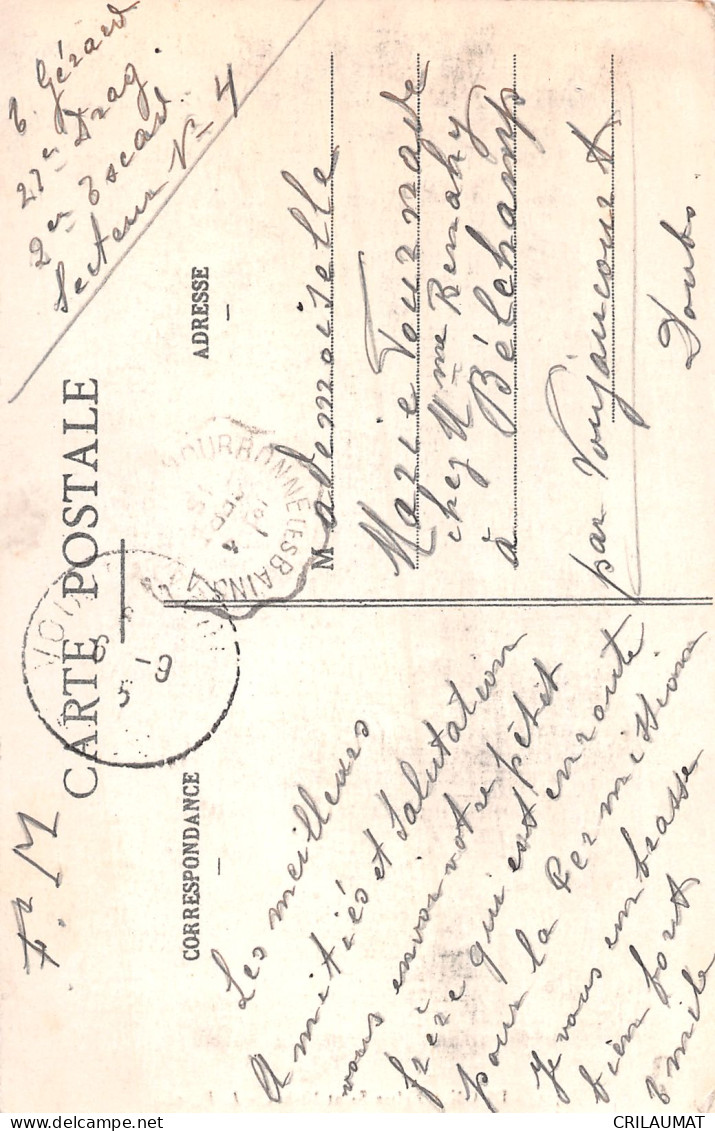 E Gérard
27e Drag
2em Escad
Secteur No 4
F. M
CARTE POSTALE
CORRESPONDANCE
ADRESSE
BOURBONNE LES BAINS
5-9
Les meilleurs
Amitiés et Salutation
vous envoi votre petit
frère qui est en route
pour la Permission
Je vous embrasse
bien fort
Emile
Mademoiselle
Marie Tournade
chez Mme Remahy
à Bélchamp
par Voujaucourt
Doubs.
CRILAUMAT